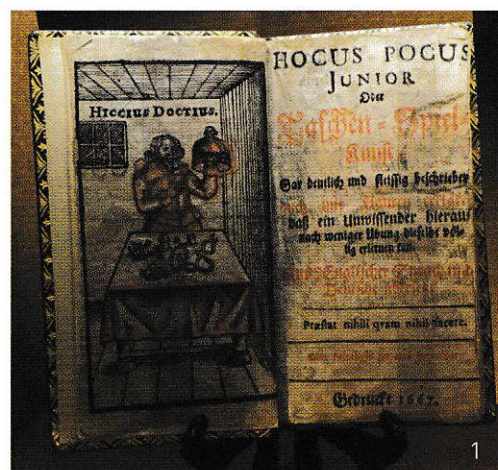 HICCIUS DOCTIUS.
HOCUS POCUS
JUNIOR
Oder
Taschen-Spiel-
Kunst
Gar deutlich und fleissig beschrieben
daß ein Unwissender hieraus
nach weniger Ubung dieselbe völ-
lig erlernen kan.
Præstat nihili qvam nihil facere.
Gedruckt 1667.
1